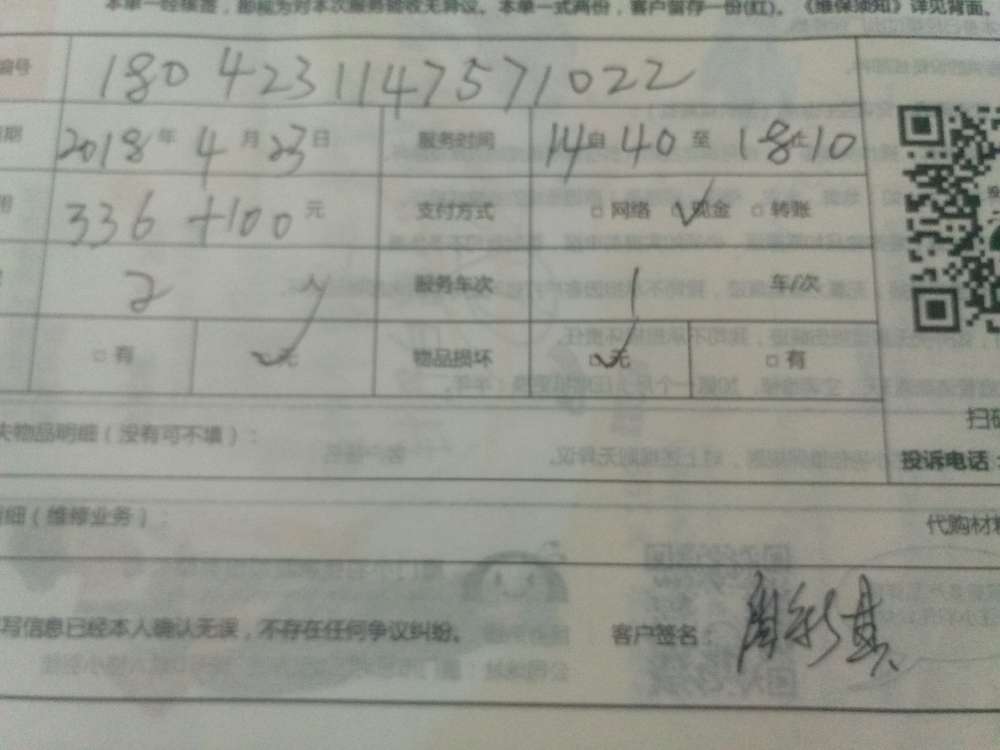 本单一经核签，即视为对本次服务验收无异议。本单一式两份，客户留存一份(红)。《维保须知》详见背面。
编号 1804231147571022
期 2018年4月23日 服务时间 14自40至18止10
用 336+100元 支付方式 □网络 ✓现金 □转账
2 人 服务年次 1 年/次
□有 ✓无 物品损坏 ✓无 □有
扫码
失物品明细（没有可不填）：
投诉电话：
明细（维修业务）
代购材料
写信息已经本人确认无误，不存在任何争议纠纷。 客户签名：